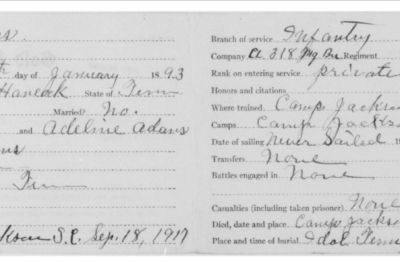 th day of January 1893
Hancock State of Tenn
Married? No.
and Adeline Adams
Tenn
kson S.C. Sep. 18, 1917
Branch of service Infantry
Company A. 318 Mg Bn Regiment
Rank on entering service private
Honors and citations
Where trained Camp Jackson
Camps Camp Jacks
Date of sailing Never Sailed 1
Transfers None
Battles engaged in None
Casualties (including taken prisoner) None
Died, date and place Camp Jackso
Place and time of burial Idol Tenn